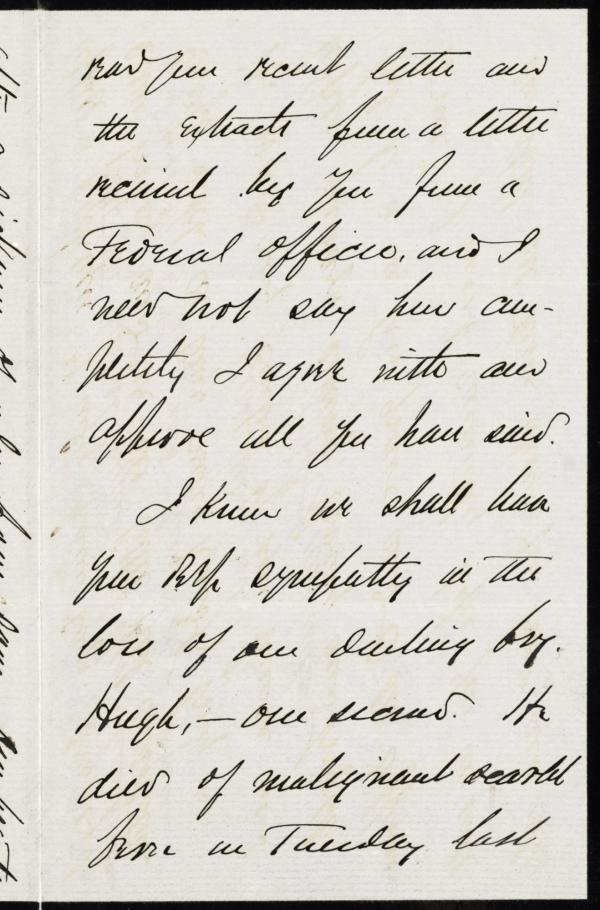 read your recent letter and
the extracts from a letter
received by you from a
Federal officer, and I
need not say how com-
pletely I agree with and
approve all you have said.
I know we shall have
your deep sympathy in the
loss of our darling boy.
Hugh, — our second. He
died of malignant scarlet
fever on Tuesday last